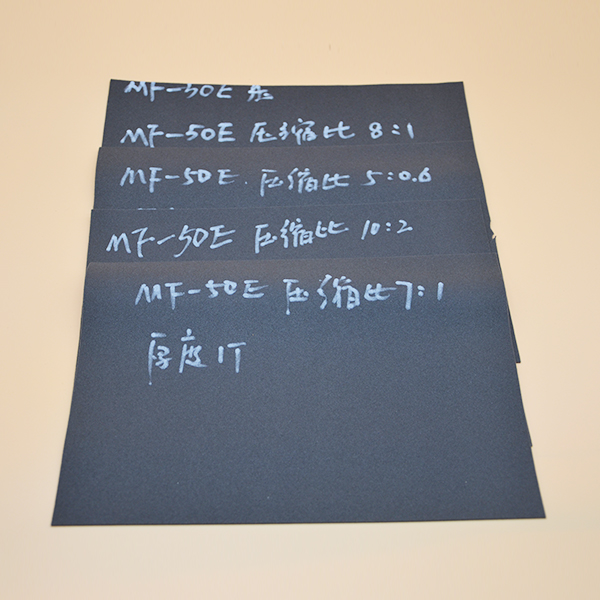 MF-50E
MF-50E 压缩比 8:1
MF-50E 压缩比 5:0.6
MF-50E 压缩比 10:2
MF-50E 压缩比 7:1
厚度 1T